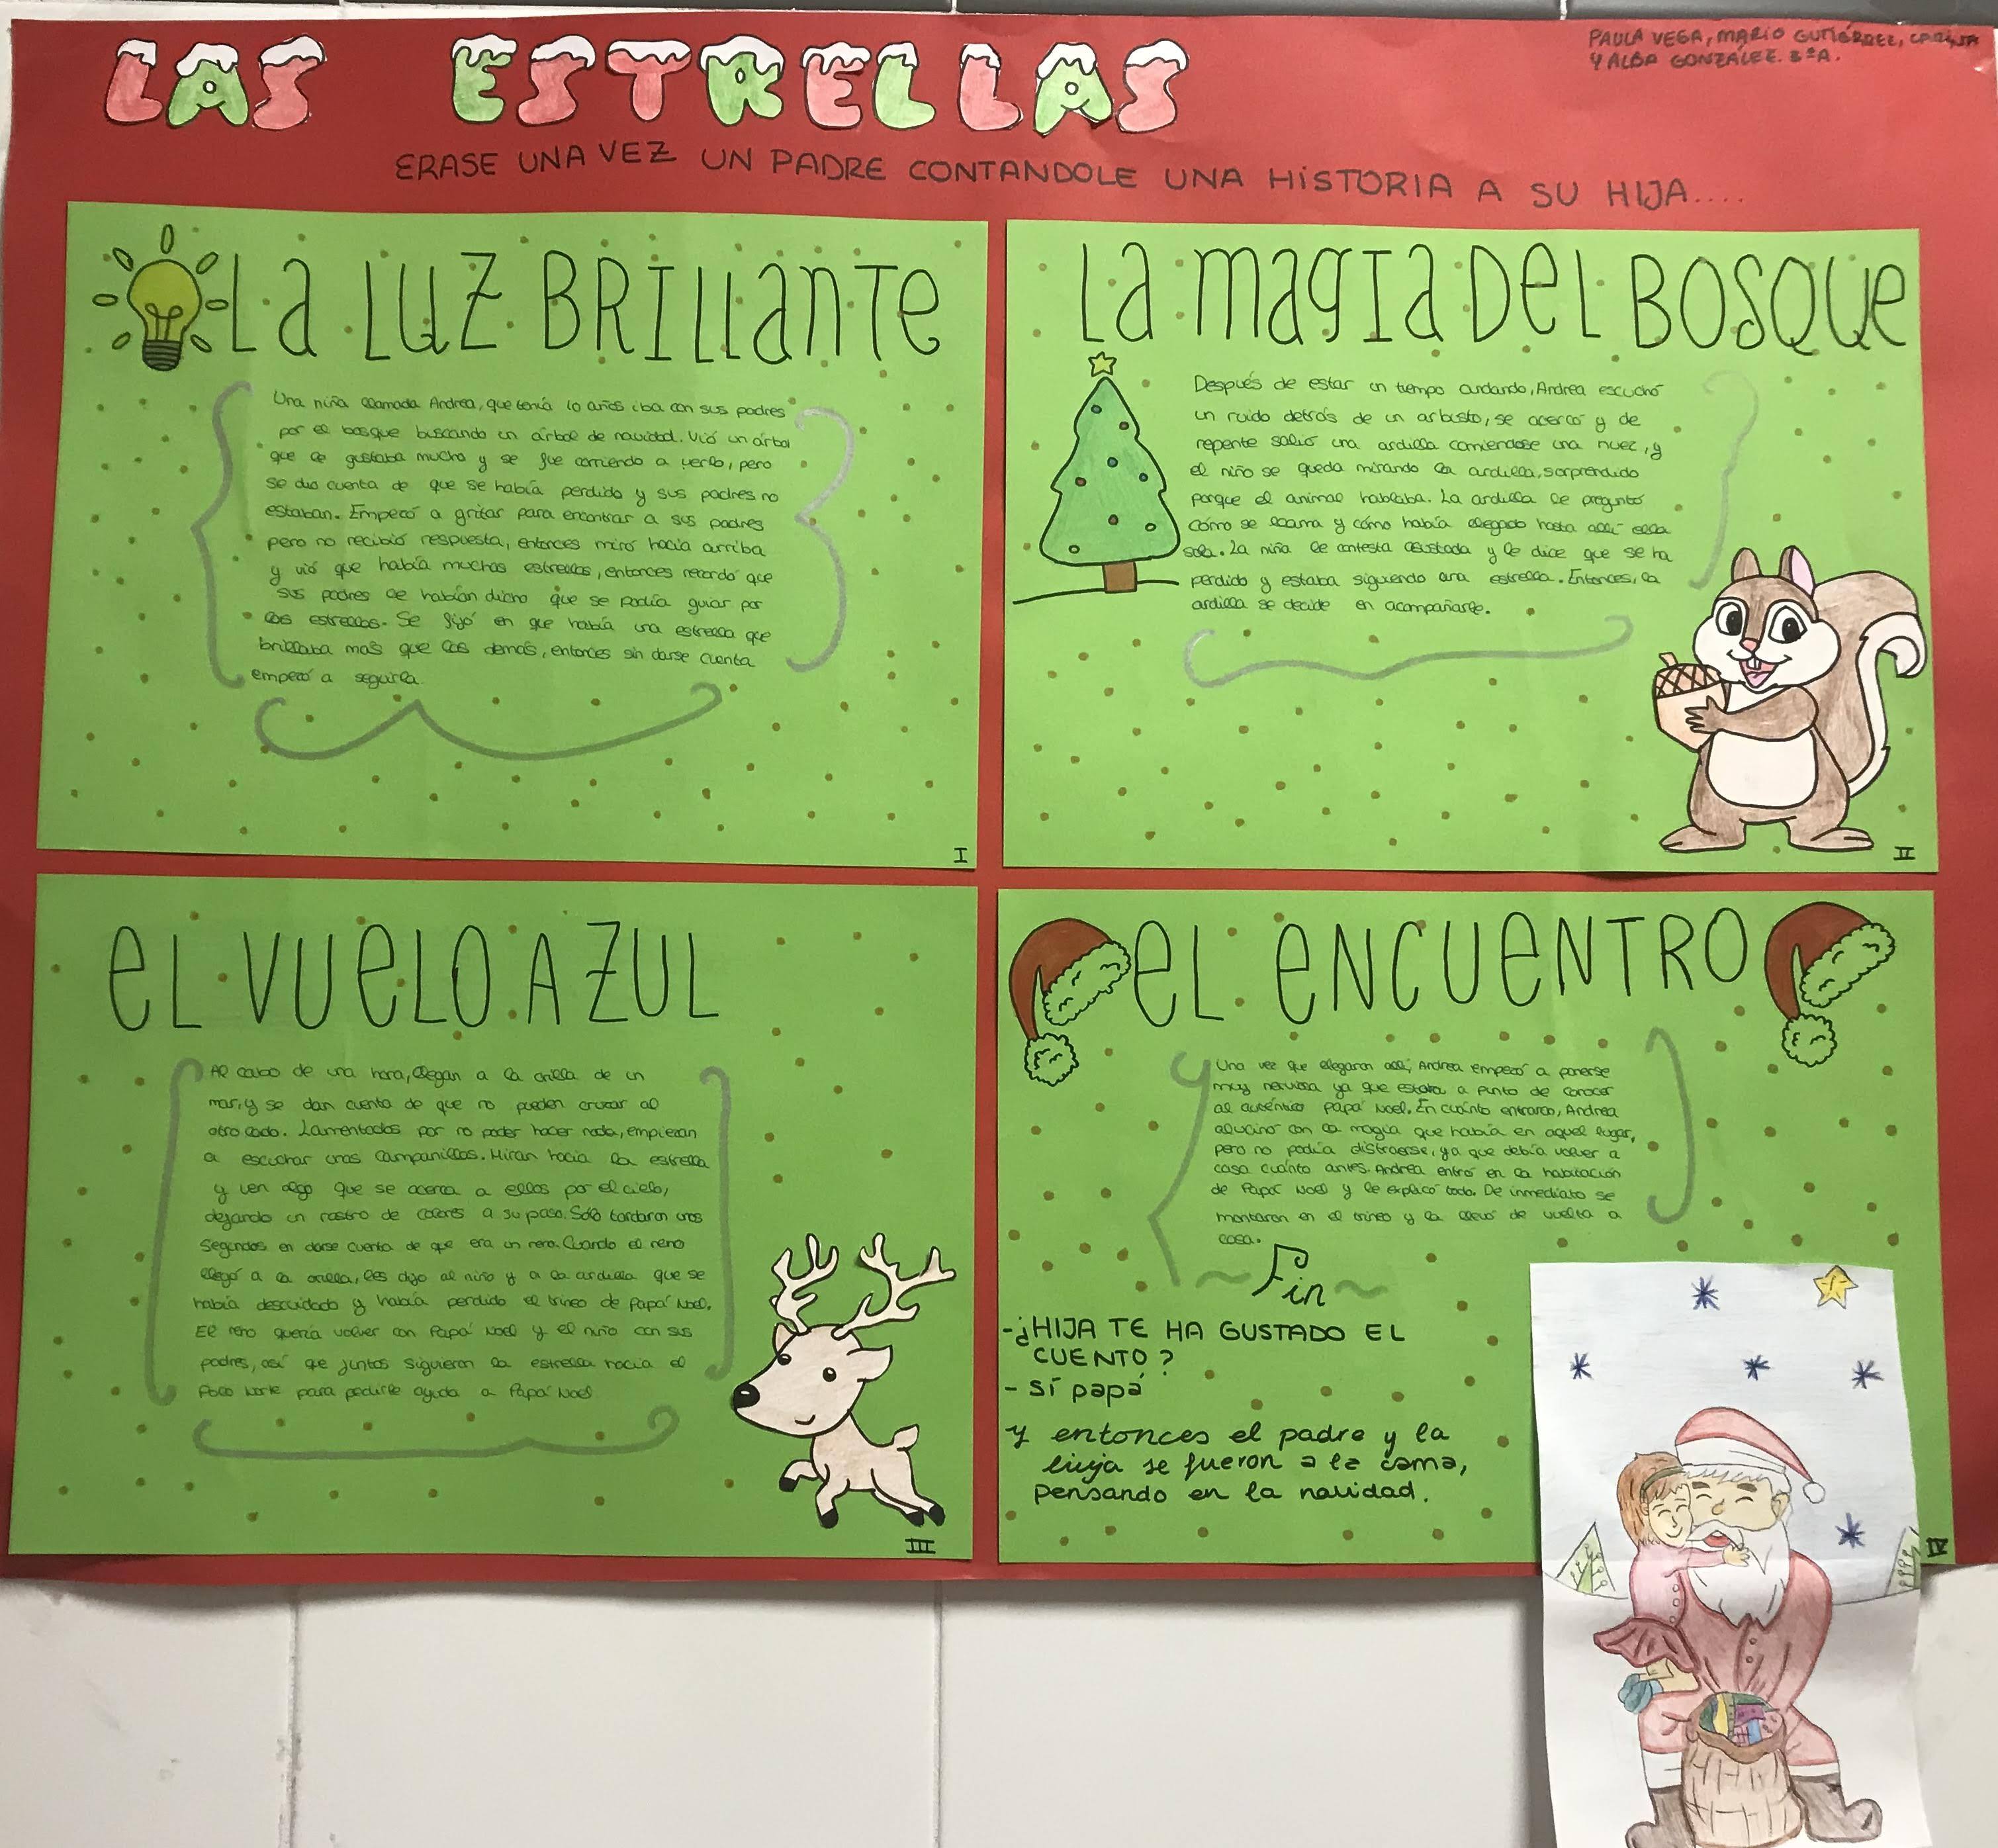 LAS ESTRELLAS
PAULA VEGA, MARIO GUTIÉRREZ, CARLA
Y ALBA GONZÁLEZ. 3ºA.
ERASE UNA VEZ UN PADRE CONTANDOLE UNA HISTORIA A SU HIJA....
LA LUZ BRILLANTE
Una niña llamada Andrea, que tenía 10 años iba con sus padres
por el bosque buscando un árbol de navidad. Vió un árbol
que le gustaba mucho y se fue corriendo a verlo, pero
se dio cuenta de que se había perdido y sus padres no
estaban. Empezó a gritar para encontrar a sus padres
pero no recibió respuesta, entonces miró hacia arriba
y vió que había muchas estrellas, entonces recordó que
sus padres le habían dicho que se podía guiar por
las estrellas. Se fijó en que había una estrella que
brillaba más que las demás, entonces sin darse cuenta
empezó a seguirla.
I
LA MAGIA DEL BOSQUE
Después de estar un tiempo andando, Andrea escuchó
un ruido detrás de un arbusto, se acercó y de
repente salió una ardilla comiendose una nuez, y
el niño se queda mirando la ardilla, sorprendido
porque el animal hablaba. La ardilla le preguntó
cómo se llama y cómo había llegado hasta allí ella
sola. La niña le contesta asustada y le dice que se ha
perdido y estaba siguiendo una estrella. Entonces, la
ardilla se decide en acompañarle.
II
EL VUELO AZUL
Al cabo de una hora, llegan a la orilla de un
mar, y se dan cuenta de que no pueden cruzar al
otro lado. Lamentados por no poder hacer nada, empiezan
a escuchar unas campanillas. Miran hacia la estrella
y ven algo que se acerca a ellos por el cielo,
dejando un rastro de colores a su paso. Sólo tardaron unos
segundos en darse cuenta de que era un reno. Cuando el reno
llegó a la orilla, les dijo al niño y a la ardilla que se
había descuidado y había perdido el trineo de Papá Noel.
El reno quería volver con Papá Noel y el niño con sus
padres, así que juntos siguieron la estrella hacia el
Polo Norte para pedirle ayuda a Papá Noel
III
EL ENCUENTRO
Una vez que llegaron allí, Andrea empezó a ponerse
muy nerviosa ya que estaba a punto de conocer
al auténtico Papá Noel. En cuánto entraron, Andrea
alucinó con la magia que había en aquel lugar,
pero no podía distraerse, ya que debía volver a
casa cuánto antes. Andrea entró en la habitación
de Papá Noel y le explicó todo. De inmediato se
montaron en el trineo y la llevó de vuelta a
casa.
~Fin~
-¿HIJA TE HA GUSTADO EL
CUENTO?
- Sí papá
Y entonces el padre y la
hija se fueron a la cama,
pensando en la navidad.
IV